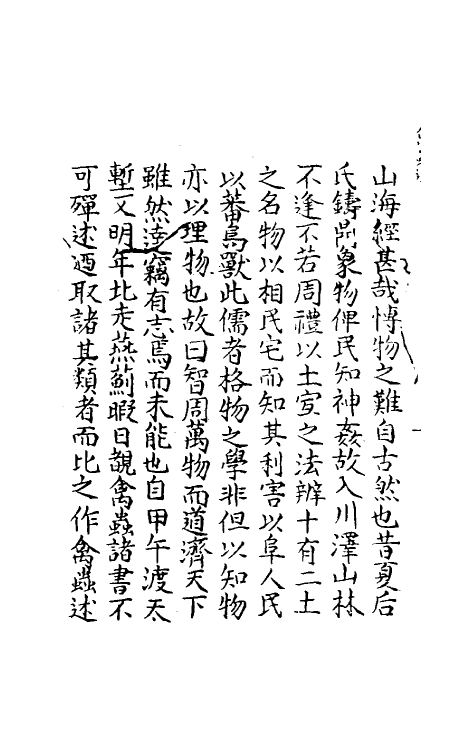 山海經甚哉愽物之難自古然也昔夏后
氏鑄鼎象物俾民知神姦故入川澤山林
不逢不若周禮以土宐之法辨十有二土
之名物以相民宅而知其利害以阜人民
以蕃鳥獸此儒者格物之學非但以知物
亦以理物也故曰智周萬物而道濟天下
雖然逵竊有志焉而未能也自甲午渡天
塹又明年北走燕薊暇日覩禽蟲諸書不
可殫述迺取諸其類者而比之作禽蟲述